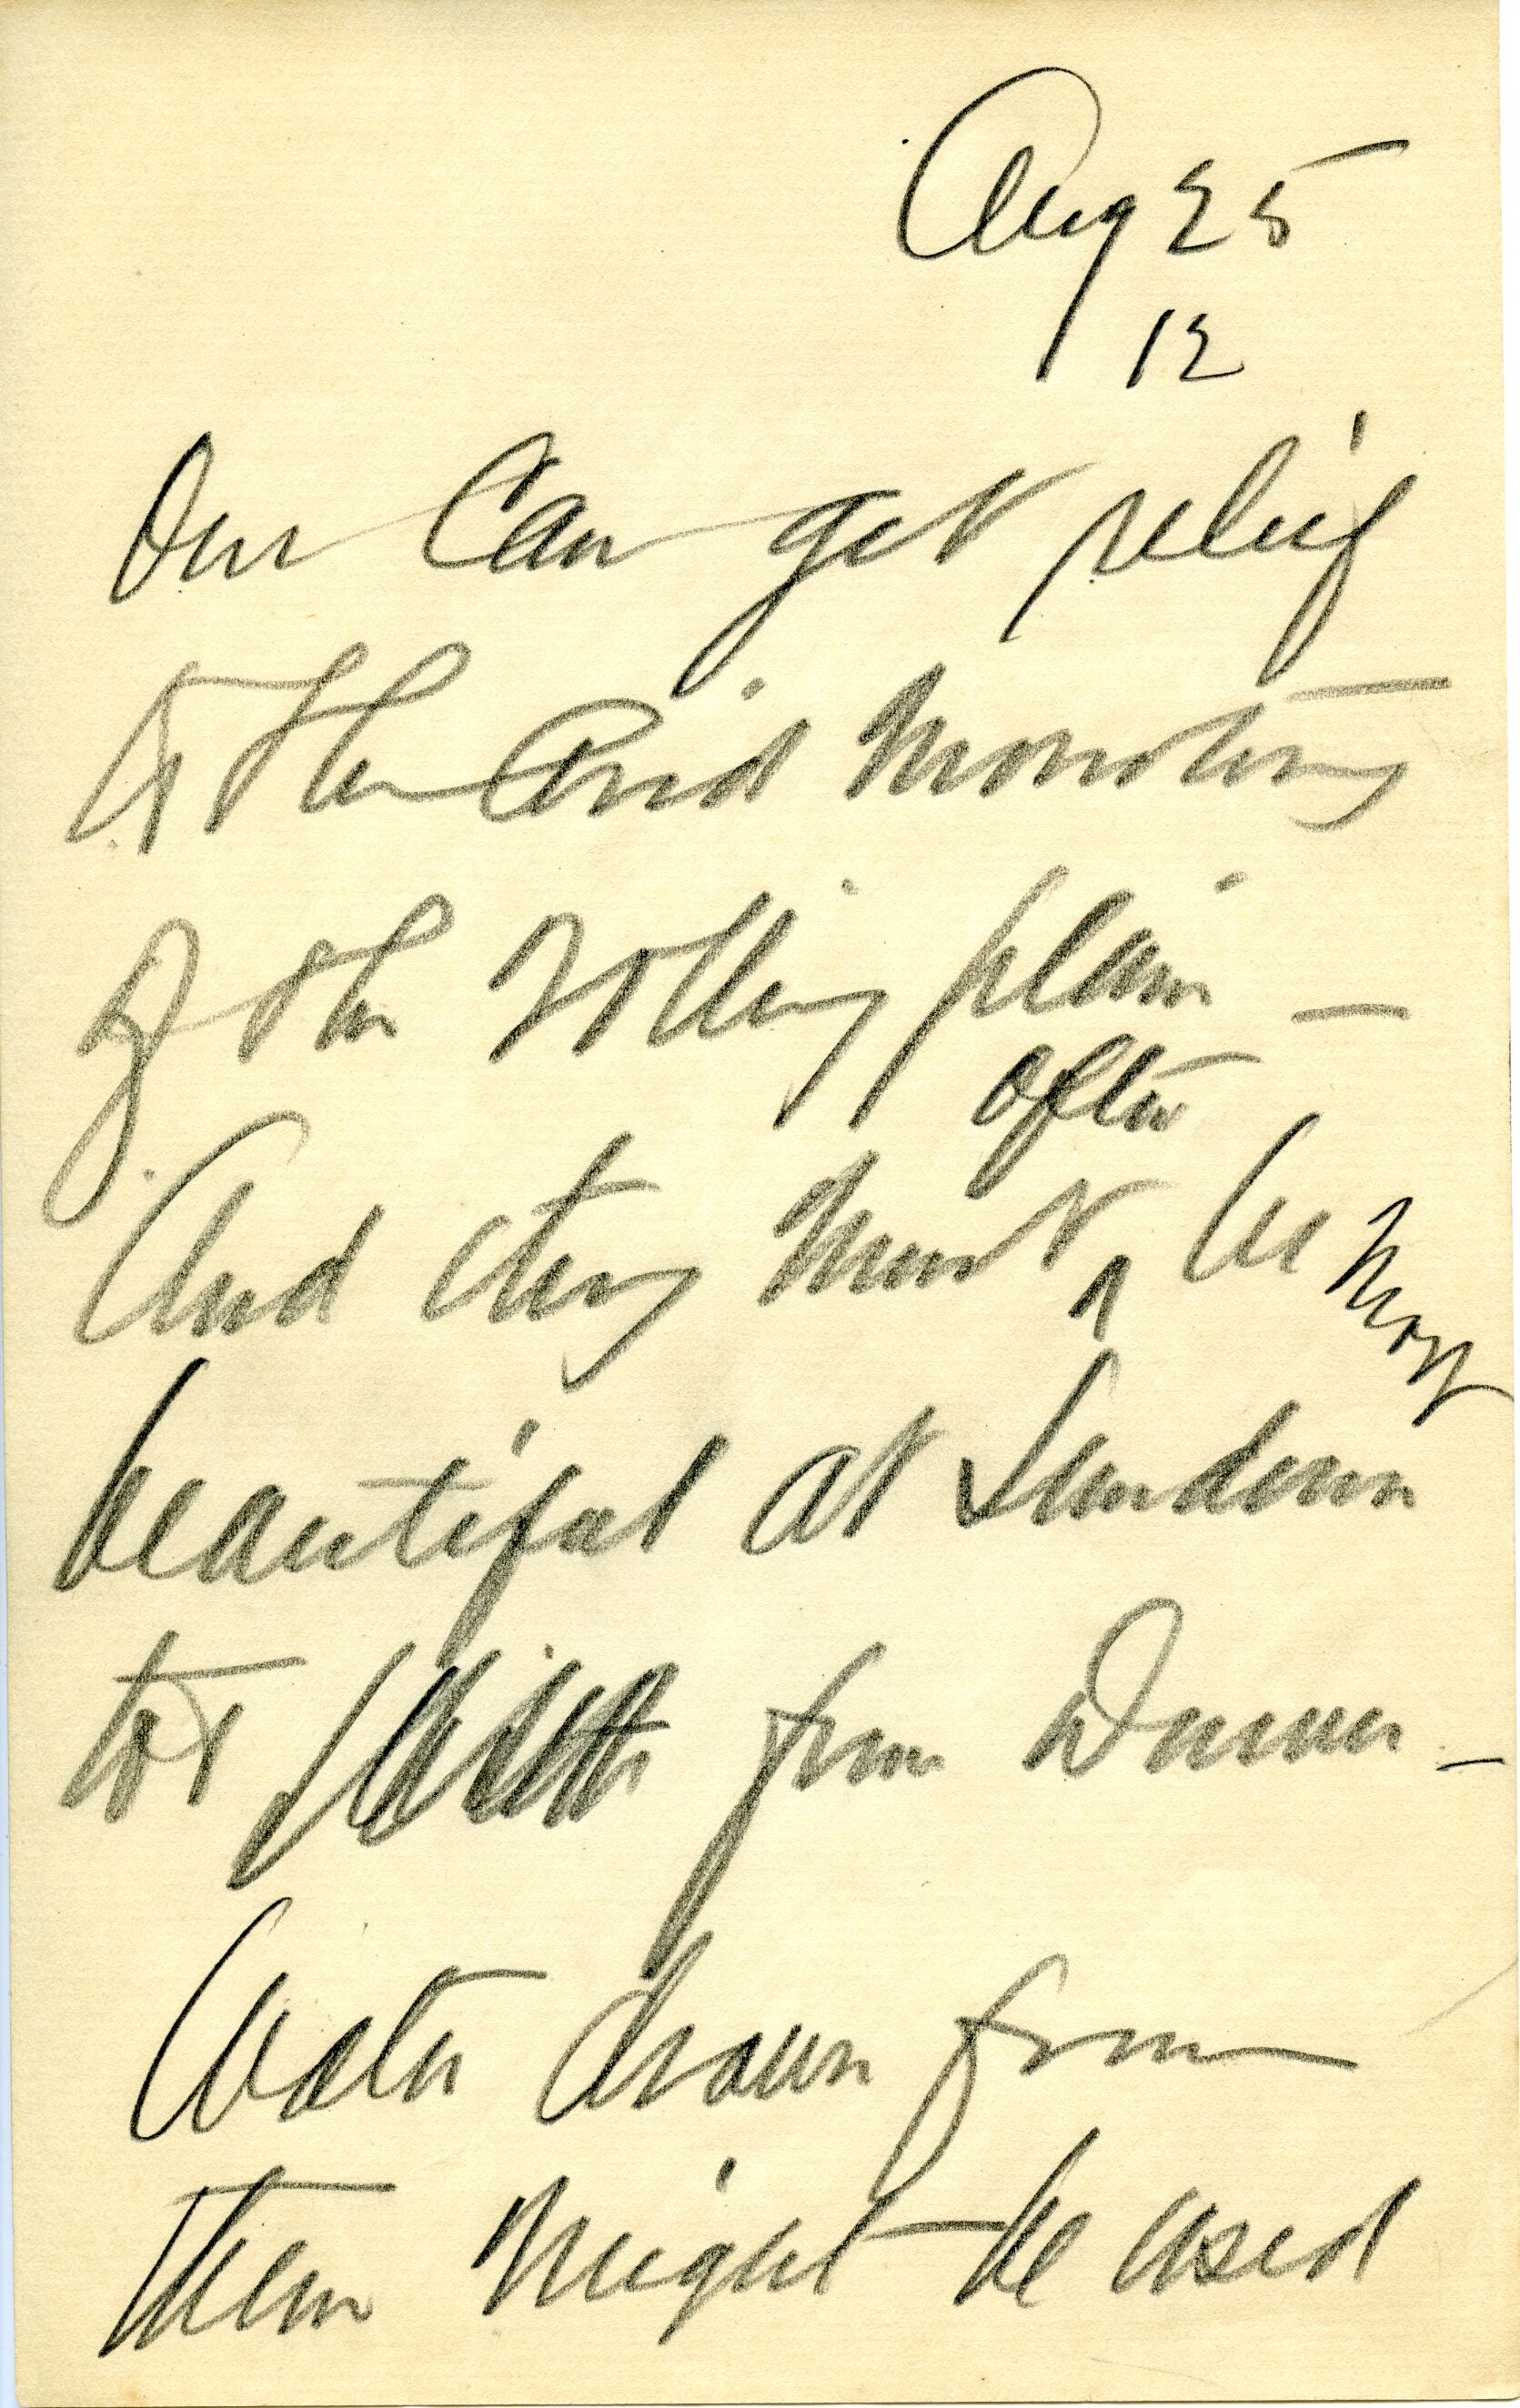 Aug 25
12
One can get relief
to the arid monotony
of the rolling plain —
often
And they must ^ be most
beautiful at Sundown
too from —
Water drawn from
them might be used